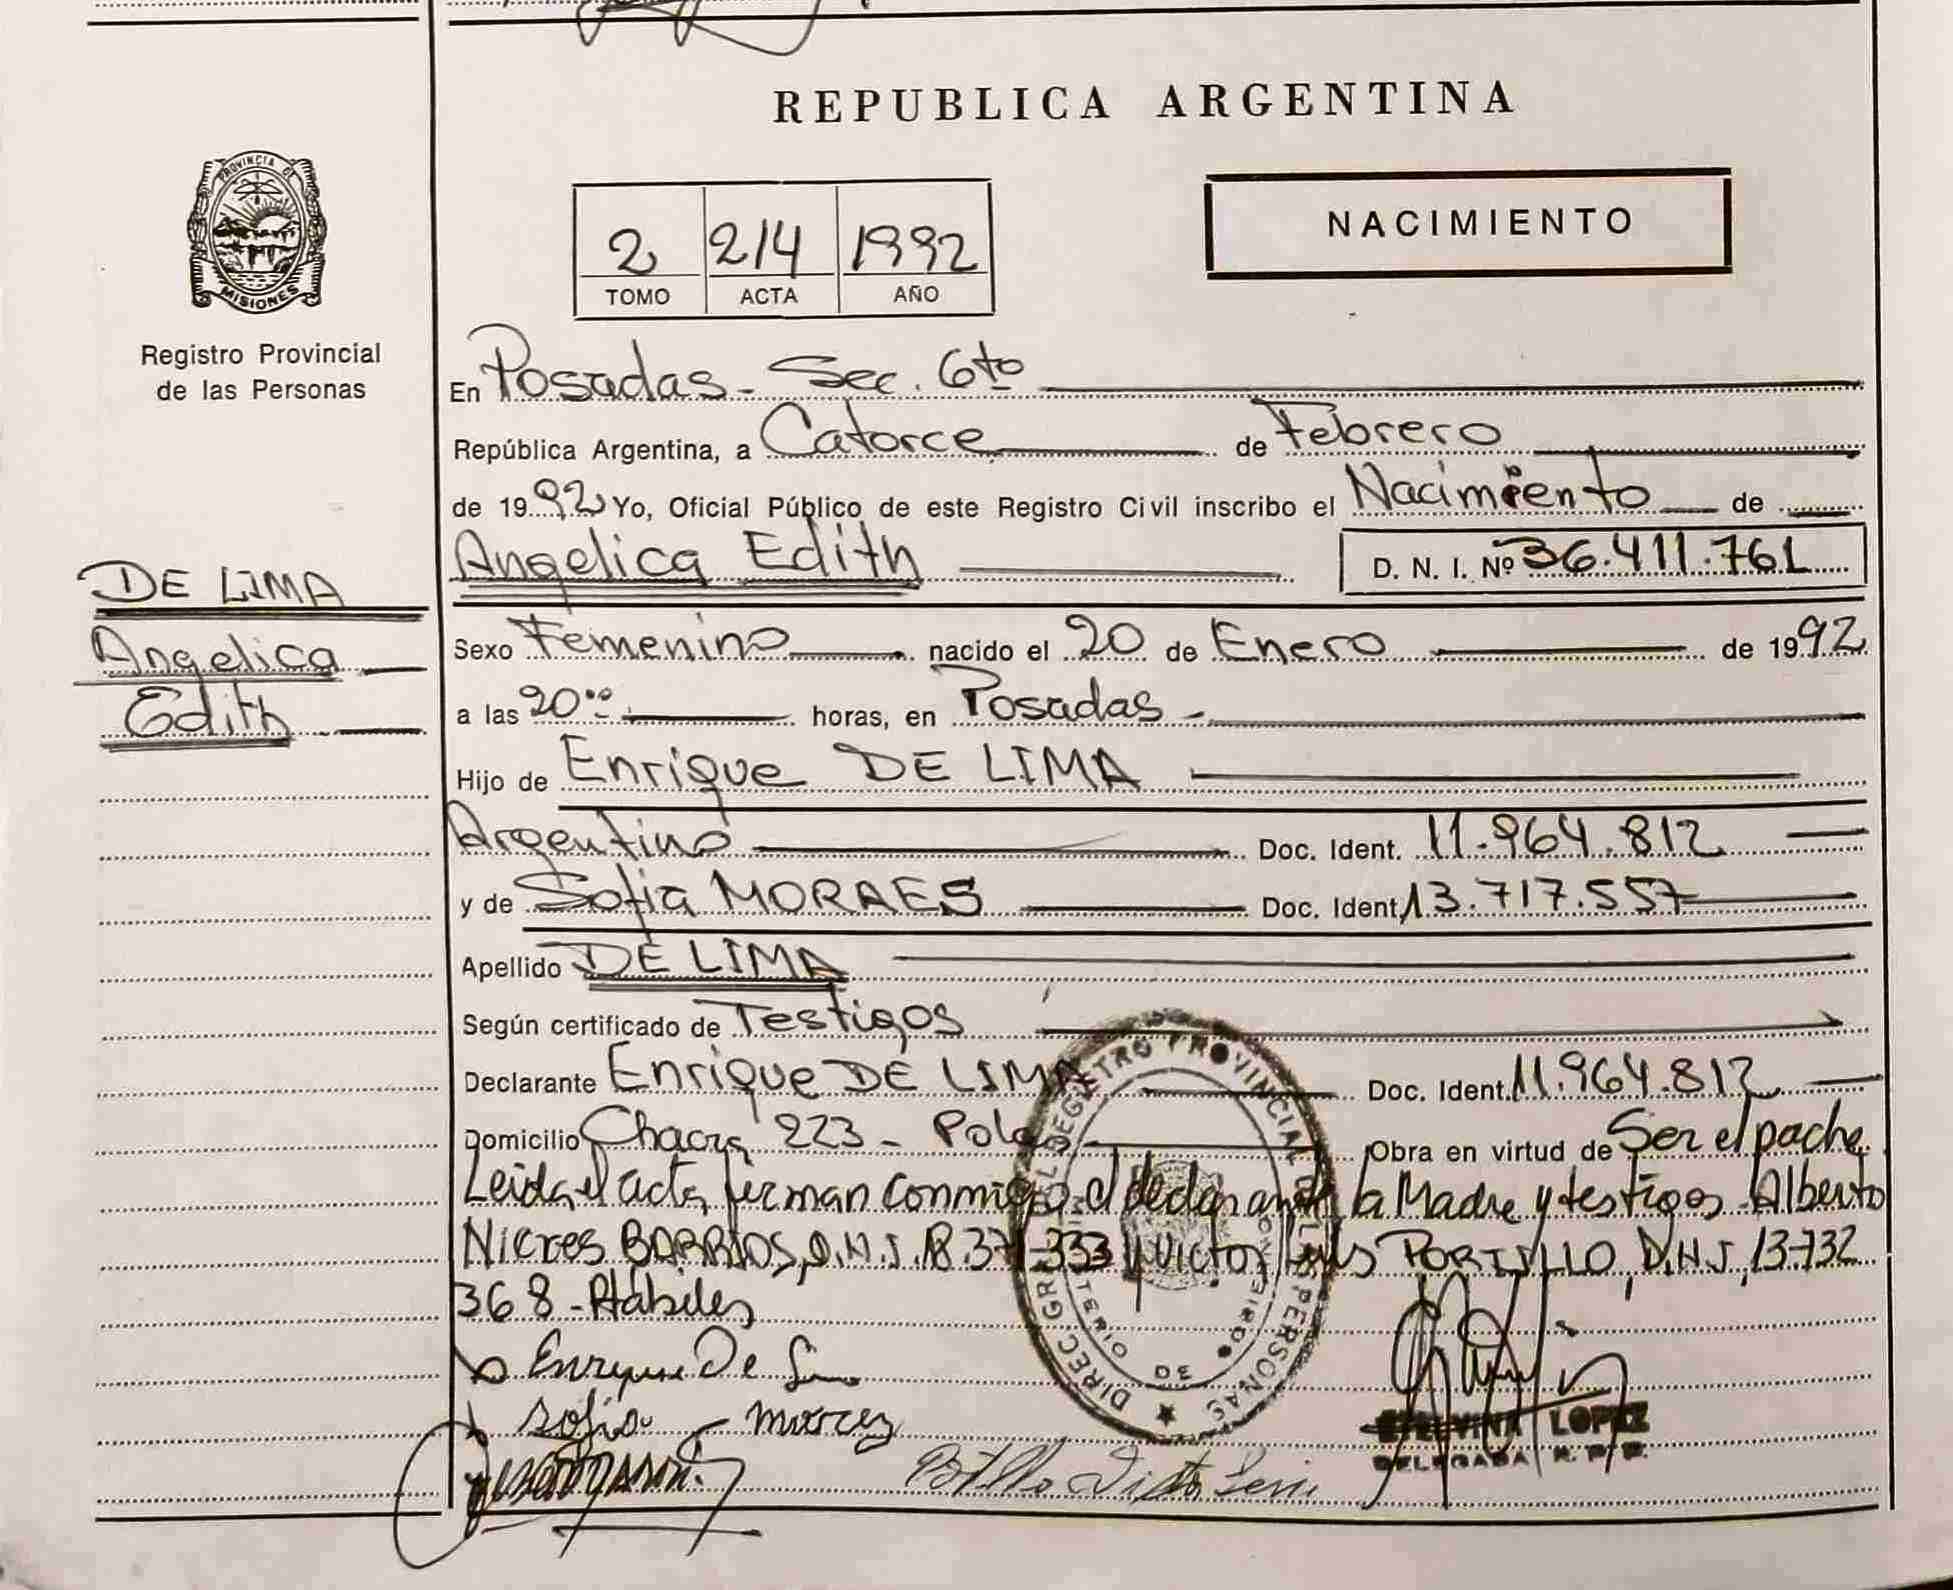 REPUBLICA ARGENTINA
PROVINCIA DE
MISIONES
Registro Provincial
de las Personas
2 214 1992
TOMO ACTA AÑO
NACIMIENTO
En Posadas - Sec. 6to
República Argentina, a Catorce de Febrero
de 1992 Yo, Oficial Público de este Registro Civil inscribo el Nacimiento de
Angelica Edith D. N. I. Nº 36.411.761
DE LIMA
Angelica
Edith
Sexo Femenino nacido el 20 de Enero de 1992
a las 20 horas, en Posadas -
Hijo de Enrique DE LIMA
Argentino Doc. Ident. 11.964.812
y de Sofia MORAES Doc. Ident. 13.717.557
Apellido DE LIMA
Según certificado de Testigos
Declarante Enrique DE LIMA Doc. Ident. 11.964.812
Domicilio Chacra 223 - Obra en virtud de Ser el padre.
Leida el acta, firman conmigo el declarante, la Madre y testigos Alberto
BARRIOS, D.N.I. y Victor Luis PORTILLO, D.N.I, 13.732
368 - Habiles
Enrique De
Sofia
Portillo Victor
DIREC. GRAL. REGISTRO PROVINCIAL DE LAS PERSONAS
LOPEZ
DELEGADA R. P. P.